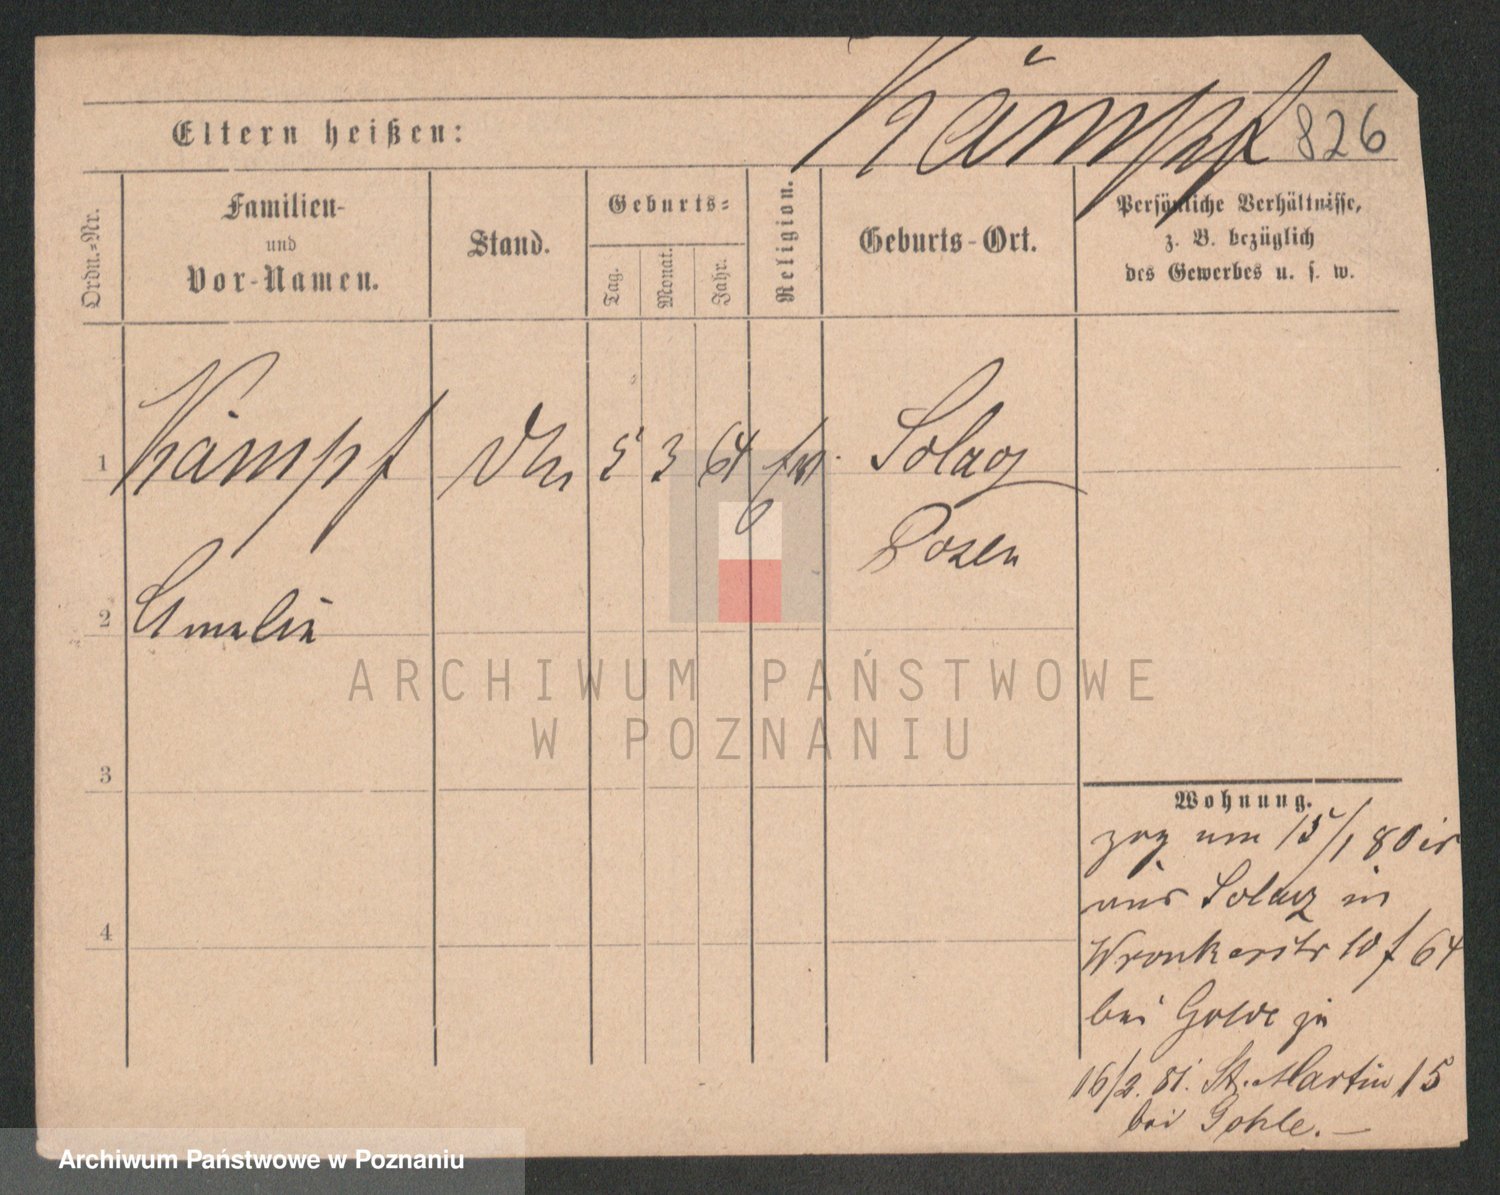 Kämpf 826
Eltern heißen:
Ordn.-Nr.
Familien-
und
Vor-Namen.
Stand.
Geburts-
Tag.
Monat.
Jahr.
Religion.
Geburts-Ort.
Persönliche Verhältnisse,
z. B. bezüglich
des Gewerbes u. s. w.
1 Kämpf 5 3 64 Solacz
Posen
2 Amalie
3
4
ARCHIWUM PAŃSTWOWE
W POZNANIU
Wohnung.
zog am 15/1 80
aus Solacz in
Wronkerstr 10 f 64
bei Golde
16/2. 81. St. Martin 15
bei Gohle.
Archiwum Państwowe w Poznaniu